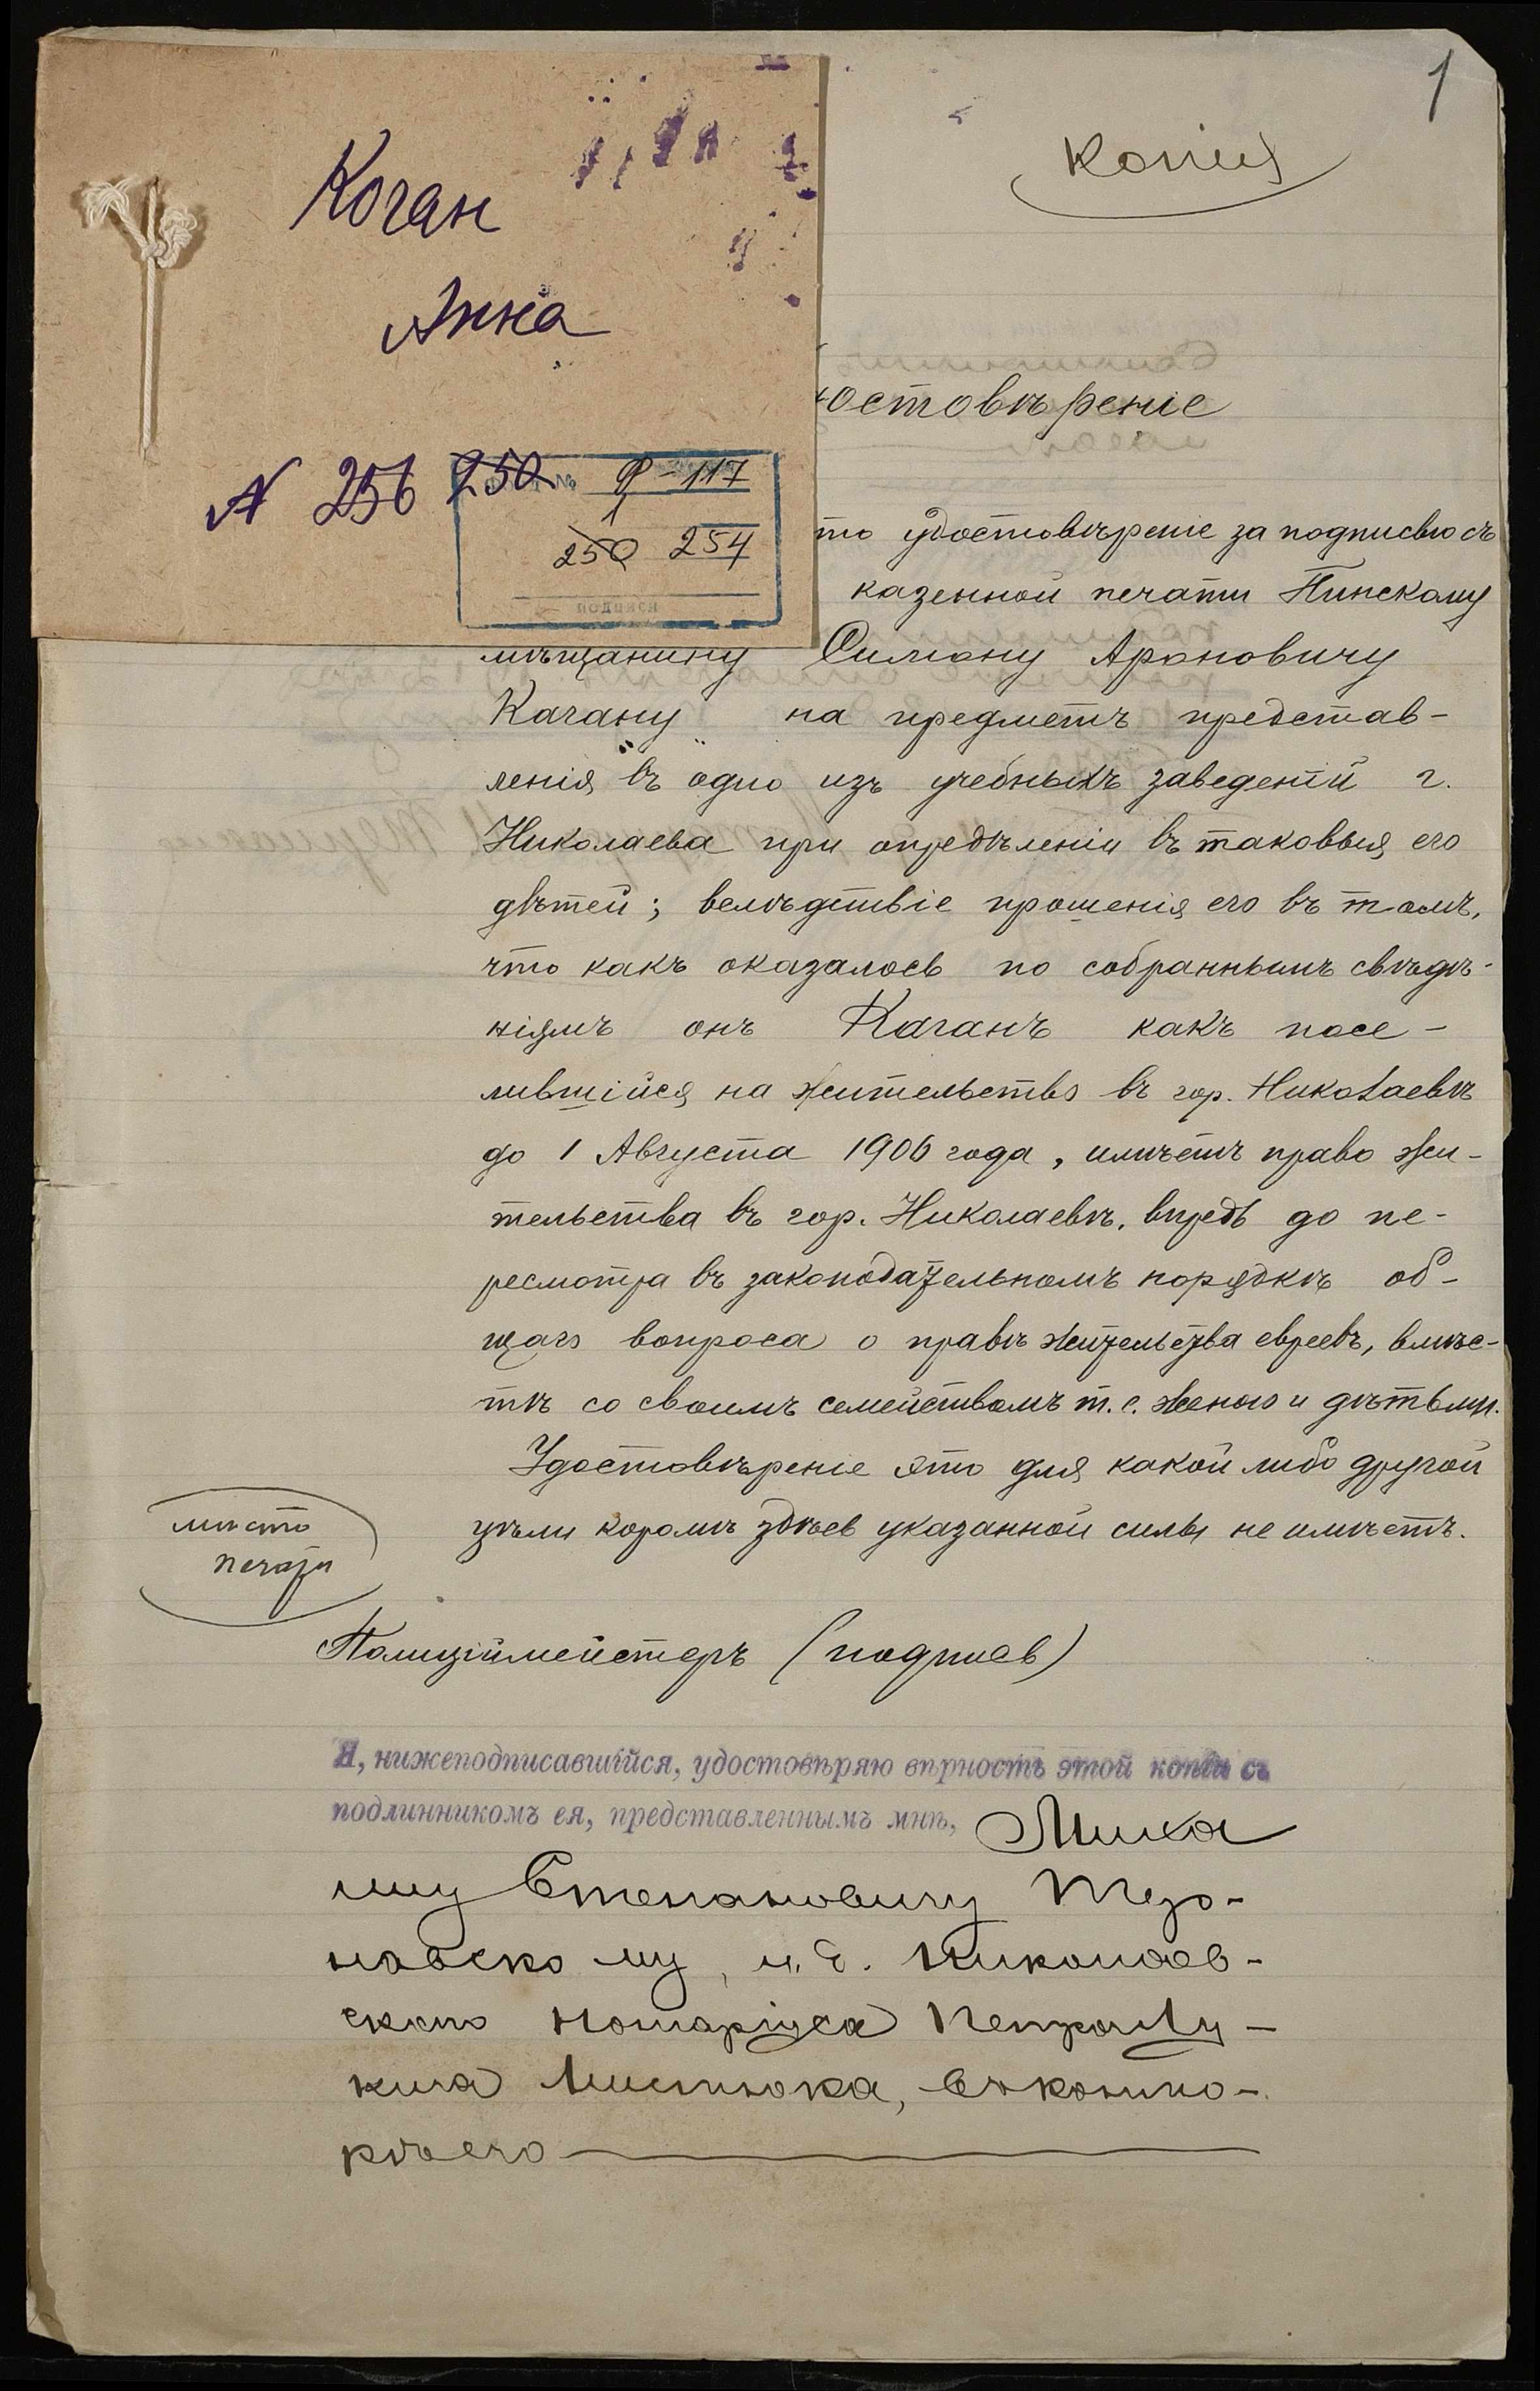 1
Копія
Коган
Анна
N 256 250
Ф-117
1
250 254
подпися
достовѣреніе
то удостовѣреніе за подписью съ
казенной печати Пинскому
мѣщанину Симону Ароновичу
Кагану на предметъ представ-
ленія въ одно изъ учебныхъ заведеній г.
Николаева при опредѣленіи въ таковыя его
дѣтей; вслѣдствіе прошенія его въ томъ,
что какъ оказалось по собраннымъ свѣдѣ-
ніямъ онъ Каганъ какъ посе-
лившійся на жительство въ гор. Николаевѣ
до 1 Августа 1906 года, имѣетъ право жи-
тельства въ гор. Николаевѣ, впредь до пе-
ресмотра въ законодательномъ порядкѣ об-
щаго вопроса о правѣ жительства евреевъ, вмѣс-
тѣ со своимъ семействомъ т.е. женою и дѣтьми.
Удостовѣреніе это для какой либо другой
цѣли кромѣ здѣсь указанной силы не имѣетъ.
мѣсто
печати
Полиціймейстеръ (подпись)
Я, нижеподписавшійся, удостовѣряю вѣрность этой копіи съ
подлинникомъ ея, представленнымъ мнѣ, Миха
илу Степановичу Тер-
навскому, и.д. Николаев-
скаго Нотаріуса Петра Лу-
кича Мистюка, въ конто-
рѣ его